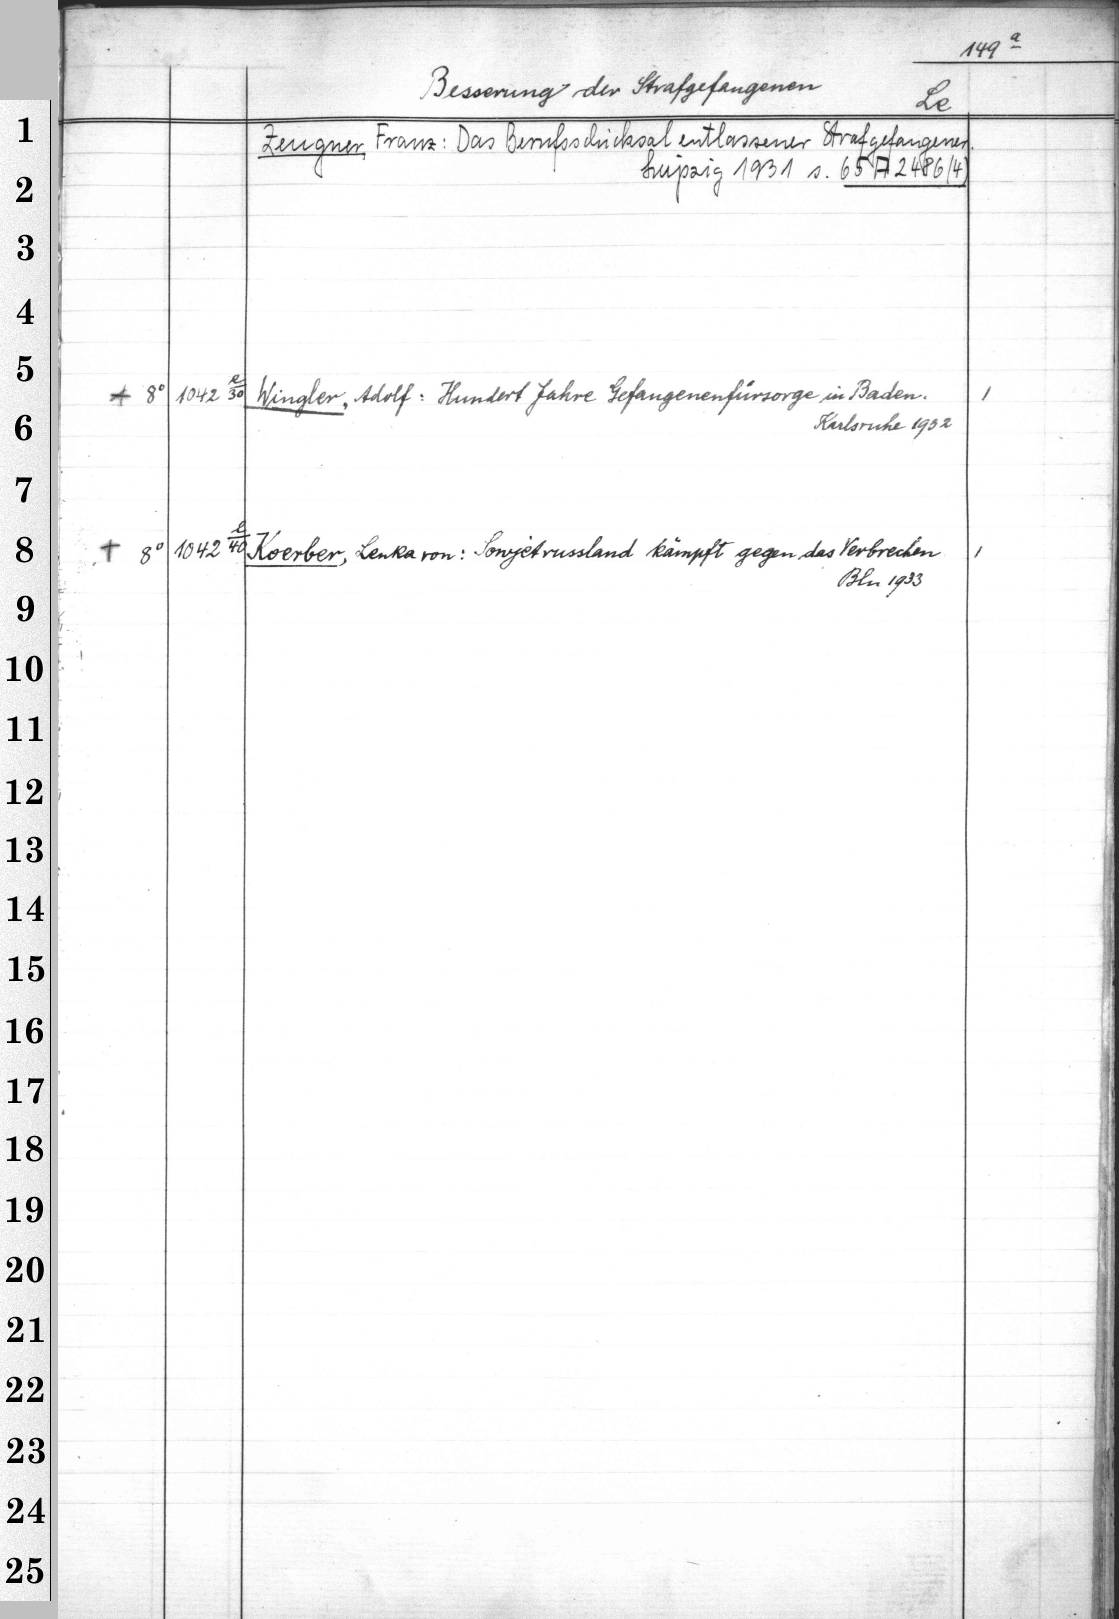 149 a
Besserung der Strafgefangenen
Le
1
Zeugner, Franz: Das Berufsschicksal entlassener Strafgefangener.
Leipzig 1931 s. 65 A 2486(4)
2
3
4
5
+ 8° 1042 e/30 Wingler, Adolf: Hundert Jahre Gefangenenfürsorge in Baden. 1
Karlsruhe 1932
6
7
8
+ 8° 1042 e/40 Koerber, Lenka von: Sowjetrussland kämpft gegen das Verbrechen 1
Bln 1933
9
10
11
12
13
14
15
16
17
18
19
20
21
22
23
24
25